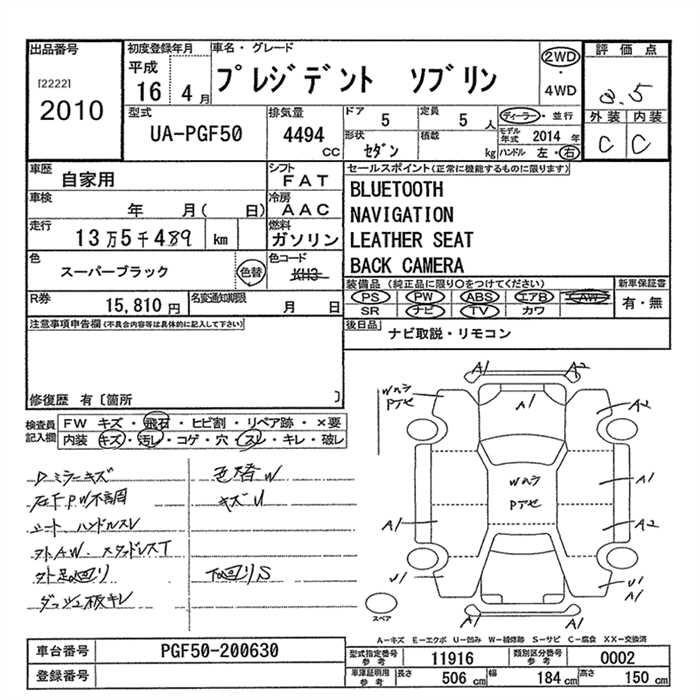 出品番号
[2222]
2010
初度登録年月
平成
16 4 月
車名・グレード
プレジデント ソブリン
2WD
・
4WD
評価点
3.5
外装 内装
C C
型式
UA-PGF50
排気量
4494
CC
ドア
5
定員
5 人
形状
セダン
積載
kg
ディーラー・並行
モデル年式 2014 年
ハンドル 左・右
車歴
自家用
シフト
FAT
車検
年 月( 日)
冷房
AAC
走行
13万5千489 km
燃料
ガソリン
色
スーパーブラック
色替
色コード
KH3
R券
15,810 円
名変通知期限
月 日
セールスポイント(正常に機能するものに限ります)
BLUETOOTH
NAVIGATION
LEATHER SEAT
BACK CAMERA
装備品 (純正品に限り○をつけてください)
PS PW ABS エアB AW
SR ナビ TV カワ
新車保証書
有・無
後日品
ナビ取説・リモコン
注意事項申告欄(不具合内容等は具体的に記入して下さい)
修復歴 有〔箇所 〕
検査員記入欄
FW キズ・飛石・ヒビ割・リペア跡・×要
内装 キズ・汚レ・コゲ・穴・スレ・キレ・破レ
Dミラーキズ 色替W
左F PW不調 キズU
シート、ハンドルスレ
外AW、スタッドレスT
外足回り 下回りS
ダッシュ板キレ
A1 A2
Wカラ
Pアセ
A1
A2
Wカラ
Pアセ
A1
A1
A2
U1
U1
A1
A1
スペア
A-キズ E-エクボ U-凹み W-補修跡 S-サビ C-腐食 XX-交換済
車台番号
PGF50-200630
登録番号
型式指定番号
参考
11916
類別区分番号
参考
0002
車庫証明用
参考
長さ
506 cm
幅
184 cm
高さ
150 cm